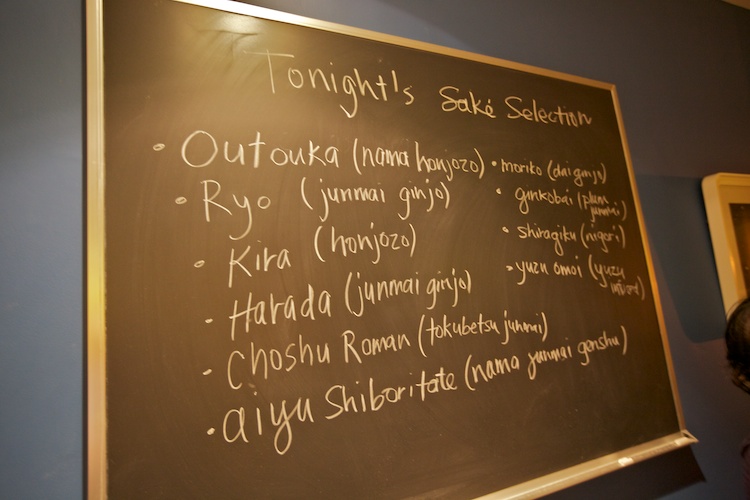 Tonight's Saké Selection
• Outouka (nama honjozo)
• Ryo (junmai ginjo)
• Kira (honjozo)
• Harada (junmai ginjo)
• Choshu Roman (tokubetsu junmai)
• aiyu Shiboritate (nama junmai genshu)
• moriko (daiginjo)
• ginkobai (plum
junmai)
• shiragiku (nigori)
• yuzu omoi (yuzu
infused)